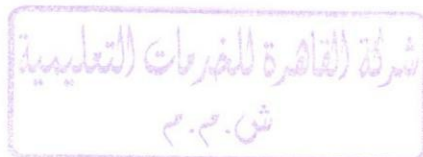 شركة القاهرة للخدمات التعليمية
ش.م.م